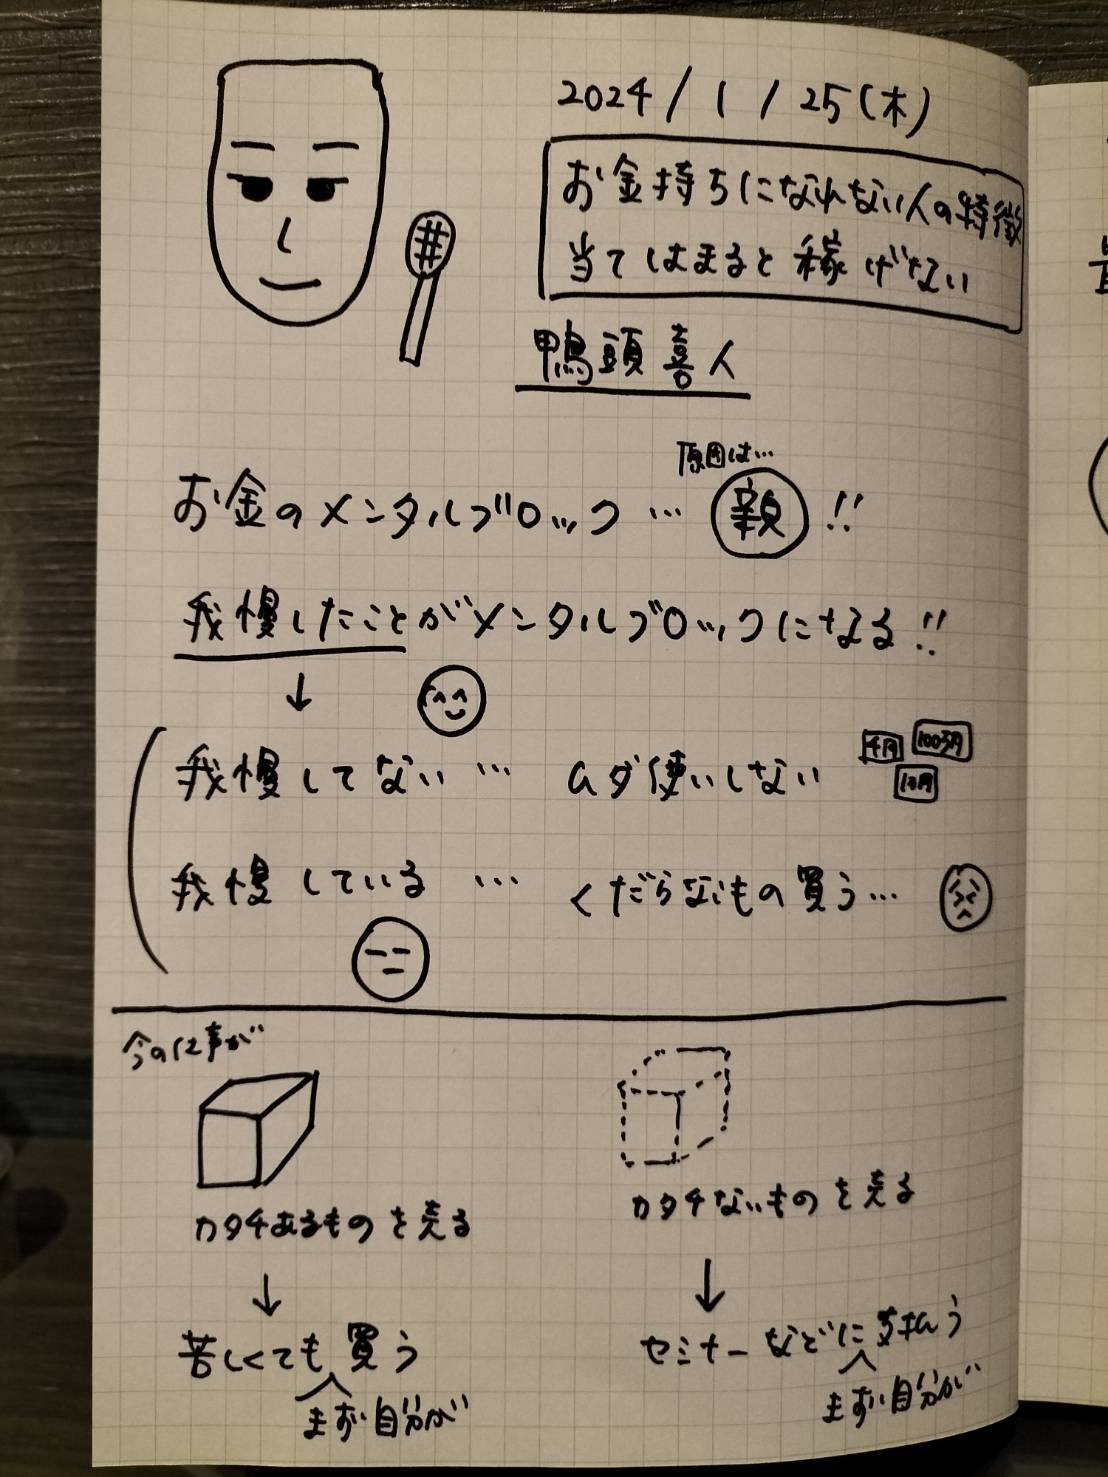 2024/1/25(木)
お金持ちになれない人の特徴
当てはまると稼げない
鴨頭喜人
原因は…
お金のメンタルブロック… 親!!
我慢したことがメンタルブロックになる!!
↓
我慢してない… ムダ使いしない
千円 100万円
1万円
我慢している… くだらないもの買う…
今の仕事が
カタチあるものを売る
カタチないものを売る
↓
↓
苦しくても買う
まず自分が
セミナーなどに支払う
まず自分が